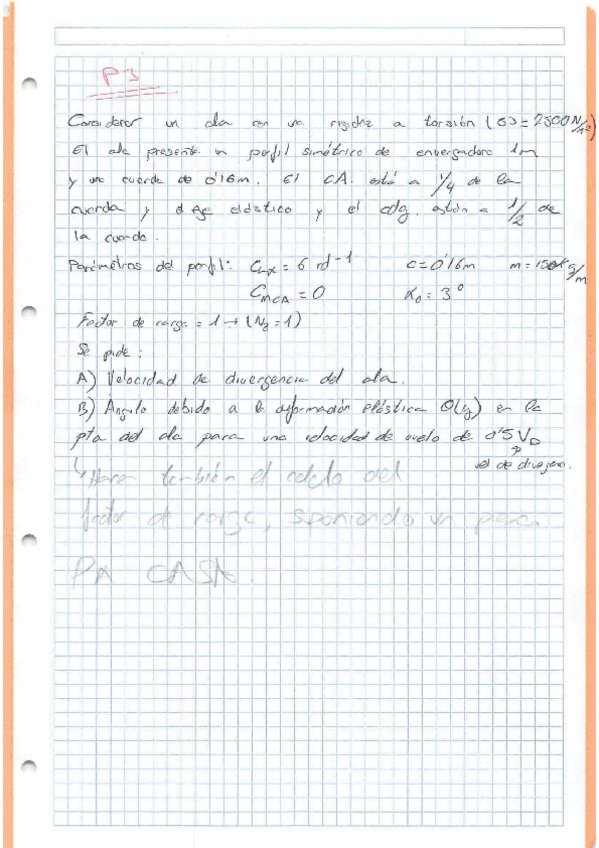 P3
Considerar un ala con una rigidez a torsión (GJ = 2500 N/m²)
El ala presenta un perfil simétrico de envergadura 1m
y una cuerda de 0'16m. El CA. está a 1/4 de la
cuerda y el eje elástico y el cdg. están a 1/2 de
la cuerda.
Parámetros del perfil: CLα = 6 rd⁻¹ c = 0'16m m = 150 Kg/m
CMCA = 0 α₀ = 3°
Factor de carga = 1 → (Nz = 1)
Se pide:
A) Velocidad de divergencia del ala.
B) Ángulo debido a la deformación elástica θ(y) en la
pta del ala para una velocidad de vuelo de 0'5 VD
vel de divergen.
↳ Hacer también el cálculo del
factor de carga, suponiendo un peso.
PA CASA.